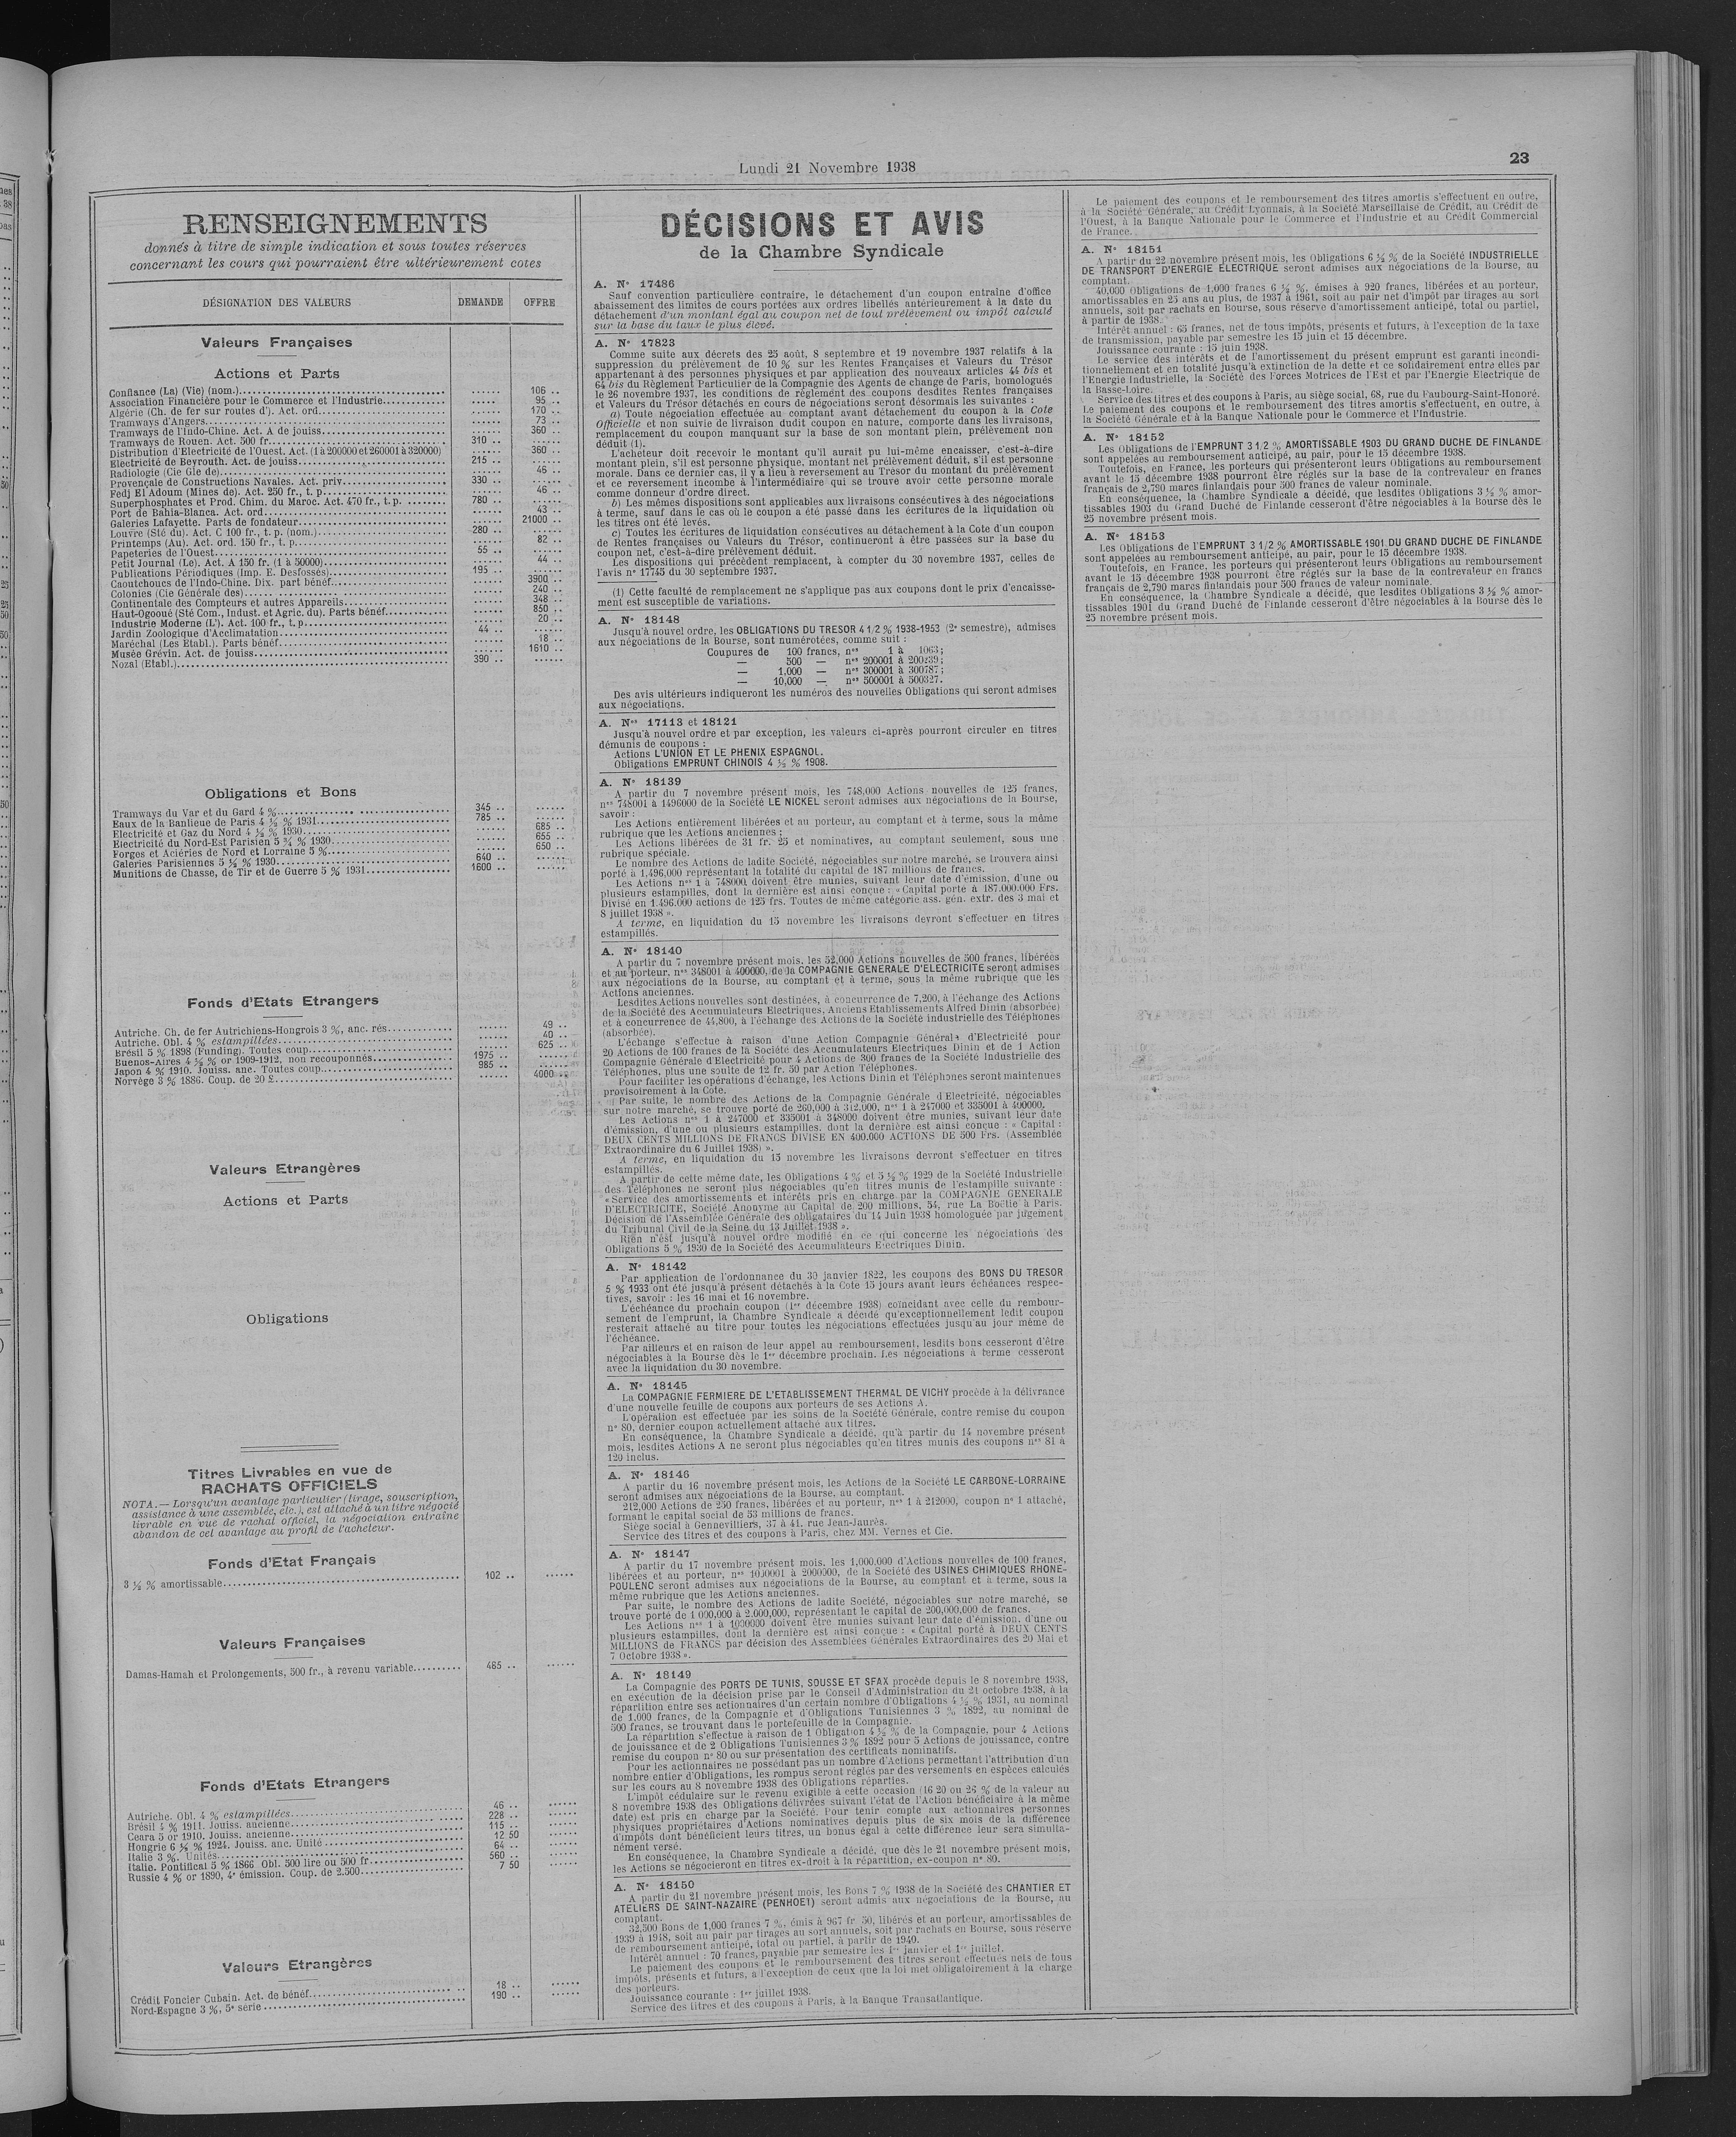 Lundi 21 Novembre 1938
23
RENSEIGNEMENTS
donnés à titre de simple indication et sous toutes réserves
concernant les cours qui pourraient être ultérieurement cotes
DÉSIGNATION DES VALEURS DEMANDE OFFRE
Valeurs Françaises
Actions et Parts
Confiance (La) (Vie) (nom.) ...... 106 ..
Association Financière pour le Commerce et l'Industrie ...... 95 ..
Algérie (Ch. de fer sur routes d'). Act. ord. ...... 170 ..
Tramways d'Angers ...... 73 ..
Tramways de l'Indo-Chine. Act. A de jouiss. ...... 360 ..
Tramways de Rouen. Act. 500 fr. 310 .. ......
Distribution d'Electricité de l'Ouest. Act. (1 à 200000 et 260001 à 320000) ...... 360 ..
Electricité de Beyrouth. Act. de jouiss. 215 .. ......
Radiologie (Cie Gle de) ...... 46 ..
Provençale de Constructions Navales. Act. priv. 330 .. ......
Fedj El Adoum (Mines de). Act. 250 fr., t. p. ...... 46 ..
Superphosphates et Prod. Chim. du Maroc. Act. 470 fr., t. p. 780 .. ......
Port de Bahia-Blanca. Act. ord. ...... 43 ..
Galeries Lafayette. Parts de fondateur ...... 21000 ..
Louvre (Sté du). Act. C 100 fr., t. p. (nom.) 280 .. ......
Printemps (Au). Act. ord. 150 fr., t. p. ...... 82 ..
Papeteries de l'Ouest 55 .. ......
Petit Journal (Le). Act. A 150 fr. (1 à 50000) ...... 44 ..
Publications Périodiques (Imp. E. Desfossés) 195 .. ......
Caoutchoucs de l'Indo-Chine. Dix. part bénéf. ...... 3900 ..
Colonies (Cie Générale des) ...... 240 ..
Continentale des Compteurs et autres Appareils ...... 348 ..
Haut-Ogooué (Sté Com., Indust. et Agric. du). Parts bénéf. ...... 850 ..
Industrie Moderne (L'). Act. 100 fr., t. p. ...... 20 ..
Jardin Zoologique d'Acclimatation 44 .. ......
Maréchal (Les Etabl.). Parts bénéf. ...... 18 ..
Musée Grévin. Act. de jouiss. ...... 1610 ..
Nozal (Etabl.) 390 .. ......
Obligations et Bons
Tramways du Var et du Gard 4 % 345 .. ......
Eaux de la Banlieue de Paris 4 ½ % 1931 785 .. ......
Electricité et Gaz du Nord 4 ½ % 1930 ...... 685 ..
Electricité du Nord-Est Parisien 5 ¾ % 1930 ...... 655 ..
Forges et Aciéries de Nord et Lorraine 5 % ...... 650 ..
Galeries Parisiennes 5 ½ % 1930 640 .. ......
Munitions de Chasse, de Tir et de Guerre 5 % 1931 1600 .. ......
Fonds d'Etats Etrangers
Autriche. Ch. de fer Autrichiens-Hongrois 3 %, anc. rés. ...... 49 ..
Autriche. Obl. 4 % estampillées ...... 40 ..
Brésil 5 % 1898 (Funding). Toutes coup. ...... 625 ..
Buenos-Aires 4 ½ % or 1909-1912, non recouponnés 1975 .. ......
Japon 4 % 1910. Jouiss. anc. Toutes coup. 985 .. ......
Norvège 3 % 1886. Coup. de 20 £ ...... 4000 ..
Valeurs Etrangères
Actions et Parts
Obligations
Titres Livrables en vue de
RACHATS OFFICIELS
NOTA. — Lorsqu'un avantage particulier (tirage, souscription,
assistance à une assemblée, etc.), est attaché à un titre négocié
livrable en vue de rachat officiel, la négociation entraîne
abandon de cet avantage au profit de l'acheteur.
Fonds d'Etat Français
3 ½ % amortissable 102 .. ......
Valeurs Françaises
Damas-Hamah et Prolongements, 500 fr., à revenu variable 485 .. ......
Fonds d'Etats Etrangers
Autriche. Obl. 4 % estampillées 46 .. ......
Brésil 4 % 1911. Jouiss. ancienne 228 .. ......
Ceara 5 or 1910. Jouiss. ancienne 115 .. ......
Hongrie 6 ½ % 1924. Jouiss. anc. Unité 12 50 ......
Italie 3 %. Unités 64 .. ......
Italie. Pontifical 5 % 1866 Obl. 500 lire ou 500 fr 560 .. ......
Russie 4 % or 1890, 4e émission. Coup. de 2.500 7 50 ......
Valeurs Etrangères
Crédit Foncier Cubain. Act. de bénéf. 18 .. ......
Nord-Espagne 3 %, 5e série 190 .. ......
DÉCISIONS ET AVIS
de la Chambre Syndicale
A. N° 17486
Sauf convention particulière contraire, le détachement d'un coupon entraîne d'office
abaissement des limites de cours portées aux ordres libellés antérieurement à la date du
détachement d'un montant égal au coupon net de tout prélèvement ou impôt calculé
sur la base du taux le plus élevé.
A. N° 17823
Comme suite aux décrets des 25 août, 8 septembre et 19 novembre 1937 relatifs à la
suppression du prélèvement de 10 % sur les Rentes Françaises et Valeurs du Trésor
appartenant à des personnes physiques et par application des nouveaux articles 44 bis et
64 bis du Règlement Particulier de la Compagnie des Agents de change de Paris, homologués
le 26 novembre 1937, les conditions de règlement des coupons desdites Rentes françaises
et Valeurs du Trésor détachés en cours de négociations seront désormais les suivantes :
a) Toute négociation effectuée au comptant avant détachement du coupon à la Cote
Officielle et non suivie de livraison dudit coupon en nature, comporte dans les livraisons,
remplacement du coupon manquant sur la base de son montant plein, prélèvement non
déduit (1).
L'acheteur doit recevoir le montant qu'il aurait pu lui-même encaisser, c'est-à-dire
montant plein, s'il est personne physique, montant net prélèvement déduit, s'il est personne
morale. Dans ce dernier cas, il y a lieu à reversement au Trésor du montant du prélèvement
et ce reversement incombe à l'intermédiaire qui se trouve avoir cette personne morale
comme donneur d'ordre direct.
b) Les mêmes dispositions sont applicables aux livraisons consécutives à des négociations
à terme, sauf dans le cas où le coupon a été passé dans les écritures de la liquidation où
les titres ont été levés.
c) Toutes les écritures de liquidation consécutives au détachement à la Cote d'un coupon
de Rentes françaises ou Valeurs du Trésor, continueront à être passées sur la base du
coupon net, c'est-à-dire prélèvement déduit.
Les dispositions qui précèdent remplacent, à compter du 30 novembre 1937, celles de
l'avis n° 17745 du 30 septembre 1937.
(1) Cette faculté de remplacement ne s'applique pas aux coupons dont le prix d'encaisse-
ment est susceptible de variations.
A. N° 18148
Jusqu'à nouvel ordre, les OBLIGATIONS DU TRESOR 4 1/2 % 1938-1953 (2e semestre), admises
aux négociations de la Bourse, sont numérotées, comme suit :
Coupures de 100 francs, nos 1 à 1063;
— 500 — nos 200001 à 200239;
— 1,000 — nos 300001 à 300787;
— 10,000 — nos 500001 à 500327.
Des avis ultérieurs indiqueront les numéros des nouvelles Obligations qui seront admises
aux négociations.
A. Nos 17113 et 18121
Jusqu'à nouvel ordre et par exception, les valeurs ci-après pourront circuler en titres
démunis de coupons :
Actions L'UNION ET LE PHENIX ESPAGNOL.
Obligations EMPRUNT CHINOIS 4 ½ % 1908.
A. N° 18139
A partir du 7 novembre présent mois, les 748,000 Actions nouvelles de 125 francs,
nos 748001 à 1496000 de la Société LE NICKEL seront admises aux négociations de la Bourse,
savoir :
Les Actions entièrement libérées et au porteur, au comptant et à terme, sous la même
rubrique que les Actions anciennes ;
Les Actions libérées de 31 fr. 25 et nominatives, au comptant seulement, sous une
rubrique spéciale.
Le nombre des Actions de ladite Société, négociables sur notre marché, se trouvera ainsi
porté à 1,496,000 représentant la totalité du capital de 187 millions de francs.
Les Actions nos 1 à 748000 doivent être munies, suivant leur date d'émission, d'une ou
plusieurs estampilles, dont la dernière est ainsi conçue : « Capital porté à 187.000.000 Frs.
Divisé en 1.496.000 actions de 125 frs. Toutes de même catégorie ass. gén. extr. des 3 mai et
8 juillet 1938 ».
A terme, en liquidation du 15 novembre les livraisons devront s'effectuer en titres
estampillés.
A. N° 18140
A partir du 7 novembre présent mois, les 52,000 Actions nouvelles de 500 francs, libérées
et au porteur, nos 348001 à 400000, de la COMPAGNIE GENERALE D'ELECTRICITE seront admises
aux négociations de la Bourse, au comptant et à terme, sous la même rubrique que les
Actions anciennes.
Lesdites Actions nouvelles sont destinées, à concurrence de 7,200, à l'échange des Actions
de la Société des Accumulateurs Electriques, Anciens Etablissements Alfred Dinin (absorbée)
et à concurrence de 44,800, à l'échange des Actions de la Société industrielle des Téléphones
(absorbée).
L'échange s'effectue à raison d'une Action Compagnie Générale d'Electricité pour
20 Actions de 100 francs de la Société des Accumulateurs Electriques Dinin et de 1 Action
Compagnie Générale d'Electricité pour 4 Actions de 300 francs de la Société Industrielle des
Téléphones, plus une soulte de 12 fr. 50 par Action Téléphones.
Pour faciliter les opérations d'échange, les Actions Dinin et Téléphones seront maintenues
provisoirement à la Cote.
Par suite, le nombre des Actions de la Compagnie Générale d'Electricité, négociables
sur notre marché, se trouve porté de 260,000 à 312,000, nos 1 à 247000 et 335001 à 400000.
Les Actions nos 1 à 247000 et 335001 à 348000 doivent être munies, suivant leur date
d'émission, d'une ou plusieurs estampilles, dont la dernière est ainsi conçue : « Capital :
DEUX CENTS MILLIONS DE FRANCS DIVISE EN 400.000 ACTIONS DE 500 Frs. (Assemblée
Extraordinaire du 6 Juillet 1938) ».
A terme, en liquidation du 15 novembre les livraisons devront s'effectuer en titres
estampillés.
A partir de cette même date, les Obligations 4 % et 5 ½ % 1929 de la Société Industrielle
des Téléphones ne seront plus négociables qu'en titres munis de l'estampille suivante :
« Service des amortissements et intérêts pris en charge par la COMPAGNIE GENERALE
D'ELECTRICITE, Société Anonyme au Capital de 200 millions, 54, rue La Boëtie à Paris.
Décision de l'Assemblée Générale des obligataires du 14 Juin 1938 homologuée par jugement
du Tribunal Civil de la Seine du 13 Juillet 1938 ».
Rien n'est jusqu'à nouvel ordre modifié en ce qui concerne les négociations des
Obligations 5 % 1930 de la Société des Accumulateurs Electriques Dinin.
A. N° 18142
Par application de l'ordonnance du 30 janvier 1822, les coupons des BONS DU TRESOR
5 % 1933 ont été jusqu'à présent détachés à la Cote 15 jours avant leurs échéances respec-
tives, savoir : les 16 mai et 16 novembre.
L'échéance du prochain coupon (1er décembre 1938) coïncidant avec celle du rembour-
sement de l'emprunt, la Chambre Syndicale a décidé qu'exceptionnellement ledit coupon
resterait attaché au titre pour toutes les négociations effectuées jusqu'au jour même de
l'échéance.
Par ailleurs et en raison de leur appel au remboursement, lesdits bons cesseront d'être
négociables à la Bourse dès le 1er décembre prochain. Les négociations à terme cesseront
avec la liquidation du 30 novembre.
A. N° 18145
La COMPAGNIE FERMIERE DE L'ETABLISSEMENT THERMAL DE VICHY procède à la délivrance
d'une nouvelle feuille de coupons aux porteurs de ses Actions A.
L'opération est effectuée par les soins de la Société Générale, contre remise du coupon
n° 80, dernier coupon actuellement attaché aux titres.
En conséquence, la Chambre Syndicale a décidé, qu'à partir du 14 novembre présent
mois, lesdites Actions A ne seront plus négociables qu'en titres munis des coupons nos 81 à
120 inclus.
A. N° 18146
A partir du 16 novembre présent mois, les Actions de la Société LE CARBONE-LORRAINE
seront admises aux négociations de la Bourse, au comptant.
212,000 Actions de 250 francs, libérées et au porteur, nos 1 à 212000, coupon n° 1 attaché,
formant le capital social de 53 millions de francs.
Siège social à Gennevilliers, 37 à 41, rue Jean-Jaurès.
Service des titres et des coupons à Paris, chez MM. Vernes et Cie.
A. N° 18147
A partir du 17 novembre présent mois, les 1,000.000 d'Actions nouvelles de 100 francs,
libérées et au porteur, nos 1000001 à 2000000, de la Société des USINES CHIMIQUES RHONE-
POULENC seront admises aux négociations de la Bourse, au comptant et à terme, sous la
même rubrique que les Actions anciennes.
Par suite, le nombre des Actions de ladite Société, négociables sur notre marché, se
trouve porté de 1 000,000 à 2.000,000, représentant le capital de 200,000,000 de francs.
Les Actions nos 1 à 1000000 doivent être munies suivant leur date d'émission, d'une ou
plusieurs estampilles, dont la dernière est ainsi conçue : « Capital porté à DEUX CENTS
MILLIONS de FRANCS par décision des Assemblées Générales Extraordinaires des 20 Mai et
7 Octobre 1938 ».
A. N° 18149
La Compagnie des PORTS DE TUNIS, SOUSSE ET SFAX procède depuis le 8 novembre 1938,
en exécution de la décision prise par le Conseil d'Administration du 21 octobre 1938, à la
répartition entre ses actionnaires d'un certain nombre d'Obligations 4 ½ % 1931, au nominal
de 1.000 francs, de la Compagnie et d'Obligations Tunisiennes 3 % 1892, au nominal de
500 francs, se trouvant dans le portefeuille de la Compagnie.
La répartition s'effectue à raison de 1 Obligation 4 ½ % de la Compagnie, pour 4 Actions
de jouissance et de 2 Obligations Tunisiennes 3 % 1892 pour 5 Actions de jouissance, contre
remise du coupon n° 80 ou sur présentation des certificats nominatifs.
Pour les actionnaires ne possédant pas un nombre d'Actions permettant l'attribution d'un
nombre entier d'Obligations, les rompus seront réglés par des versements en espèces calculés
sur les cours au 8 novembre 1938 des Obligations réparties.
L'impôt cédulaire sur le revenu exigible à cette occasion (16 20 ou 26 % de la valeur au
8 novembre 1938 des Obligations délivrées suivant l'état de l'Action bénéficiaire à la même
date) est pris en charge par la Société. Pour tenir compte aux actionnaires personnes
physiques propriétaires d'Actions nominatives depuis plus de six mois de la différence
d'impôts dont bénéficient leurs titres, un bonus égal à cette différence leur sera simulta-
nément versé.
En conséquence, la Chambre Syndicale a décidé, que dès le 21 novembre présent mois,
les Actions se négocieront en titres ex-droit à la répartition, ex-coupon n° 80.
A. N° 18150
A partir du 21 novembre présent mois, les Bons 7 % 1938 de la Société des CHANTIER ET
ATELIERS DE SAINT-NAZAIRE (PENHOET) seront admis aux négociations de la Bourse, au
comptant.
32,500 Bons de 1,000 francs 7 %, émis à 967 fr. 50, libérés et au porteur, amortissables de
1939 à 1948, soit au pair par tirages au sort annuels, soit par rachats en Bourse, sous réserve
de remboursement anticipé, total ou partiel, à partir de 1940.
Intérêt annuel : 70 francs, payable par semestre les 1er janvier et 1er juillet.
Le paiement des coupons et le remboursement des titres seront effectués nets de tous
impôts, présents et futurs, à l'exception de ceux que la loi met obligatoirement à la charge
des porteurs.
Jouissance courante : 1er juillet 1938.
Service des titres et des coupons à Paris, à la Banque Transatlantique.
Le paiement des coupons et le remboursement des titres amortis s'effectuent en outre,
à la Société Générale, au Crédit Lyonnais, à la Société Marseillaise de Crédit, au Crédit de
l'Ouest, à la Banque Nationale pour le Commerce et l'Industrie et au Crédit Commercial
de France.
A. N° 18151
A partir du 22 novembre présent mois, les Obligations 6 ½ % de la Société INDUSTRIELLE
DE TRANSPORT D'ENERGIE ELECTRIQUE seront admises aux négociations de la Bourse, au
comptant.
40.000 Obligations de 1,000 francs 6 ½ %, émises à 920 francs, libérées et au porteur,
amortissables en 25 ans au plus, de 1937 à 1961, soit au pair net d'impôt par tirages au sort
annuels, soit par rachats en Bourse, sous réserve d'amortissement anticipé, total ou partiel,
à partir de 1938.
Intérêt annuel : 65 francs, net de tous impôts, présents et futurs, à l'exception de la taxe
de transmission, payable par semestre les 15 juin et 15 décembre.
Jouissance courante : 15 juin 1938.
Le service des intérêts et de l'amortissement du présent emprunt est garanti incondi-
tionnellement et en totalité jusqu'à extinction de la dette et ce solidairement entre elles par
l'Energie Industrielle, la Société des Forces Motrices de l'Est et par l'Energie Electrique de
la Basse-Loire.
Service des titres et des coupons à Paris, au siège social, 68, rue du Faubourg-Saint-Honoré.
Le paiement des coupons et le remboursement des titres amortis s'effectuent, en outre, à
la Société Générale et à la Banque Nationale pour le Commerce et l'Industrie.
A. N° 18152
Les Obligations de l'EMPRUNT 3 1/2 % AMORTISSABLE 1903 DU GRAND DUCHE DE FINLANDE
sont appelées au remboursement anticipé, au pair, pour le 15 décembre 1938.
Toutefois, en France, les porteurs qui présenteront leurs Obligations au remboursement
avant le 15 décembre 1938 pourront être réglés sur la base de la contrevaleur en francs
français de 2,790 marcs finlandais pour 500 francs de valeur nominale.
En conséquence, la Chambre Syndicale a décidé, que lesdites Obligations 3 ½ % amor-
tissables 1903 du Grand Duché de Finlande cesseront d'être négociables à la Bourse dès le
25 novembre présent mois.
A. N° 18153
Les Obligations de l'EMPRUNT 3 1/2 % AMORTISSABLE 1901 DU GRAND DUCHE DE FINLANDE
sont appelées au remboursement anticipé, au pair, pour le 15 décembre 1938.
Toutefois, en France, les porteurs qui présenteront leurs Obligations au remboursement
avant le 15 décembre 1938 pourront être réglés sur la base de la contrevaleur en francs
français de 2,790 marcs finlandais pour 500 francs de valeur nominale.
En conséquence, la Chambre Syndicale a décidé, que lesdites Obligations 3 ½ % amor-
tissables 1901 du Grand Duché de Finlande cesseront d'être négociables à la Bourse dès le
25 novembre présent mois.